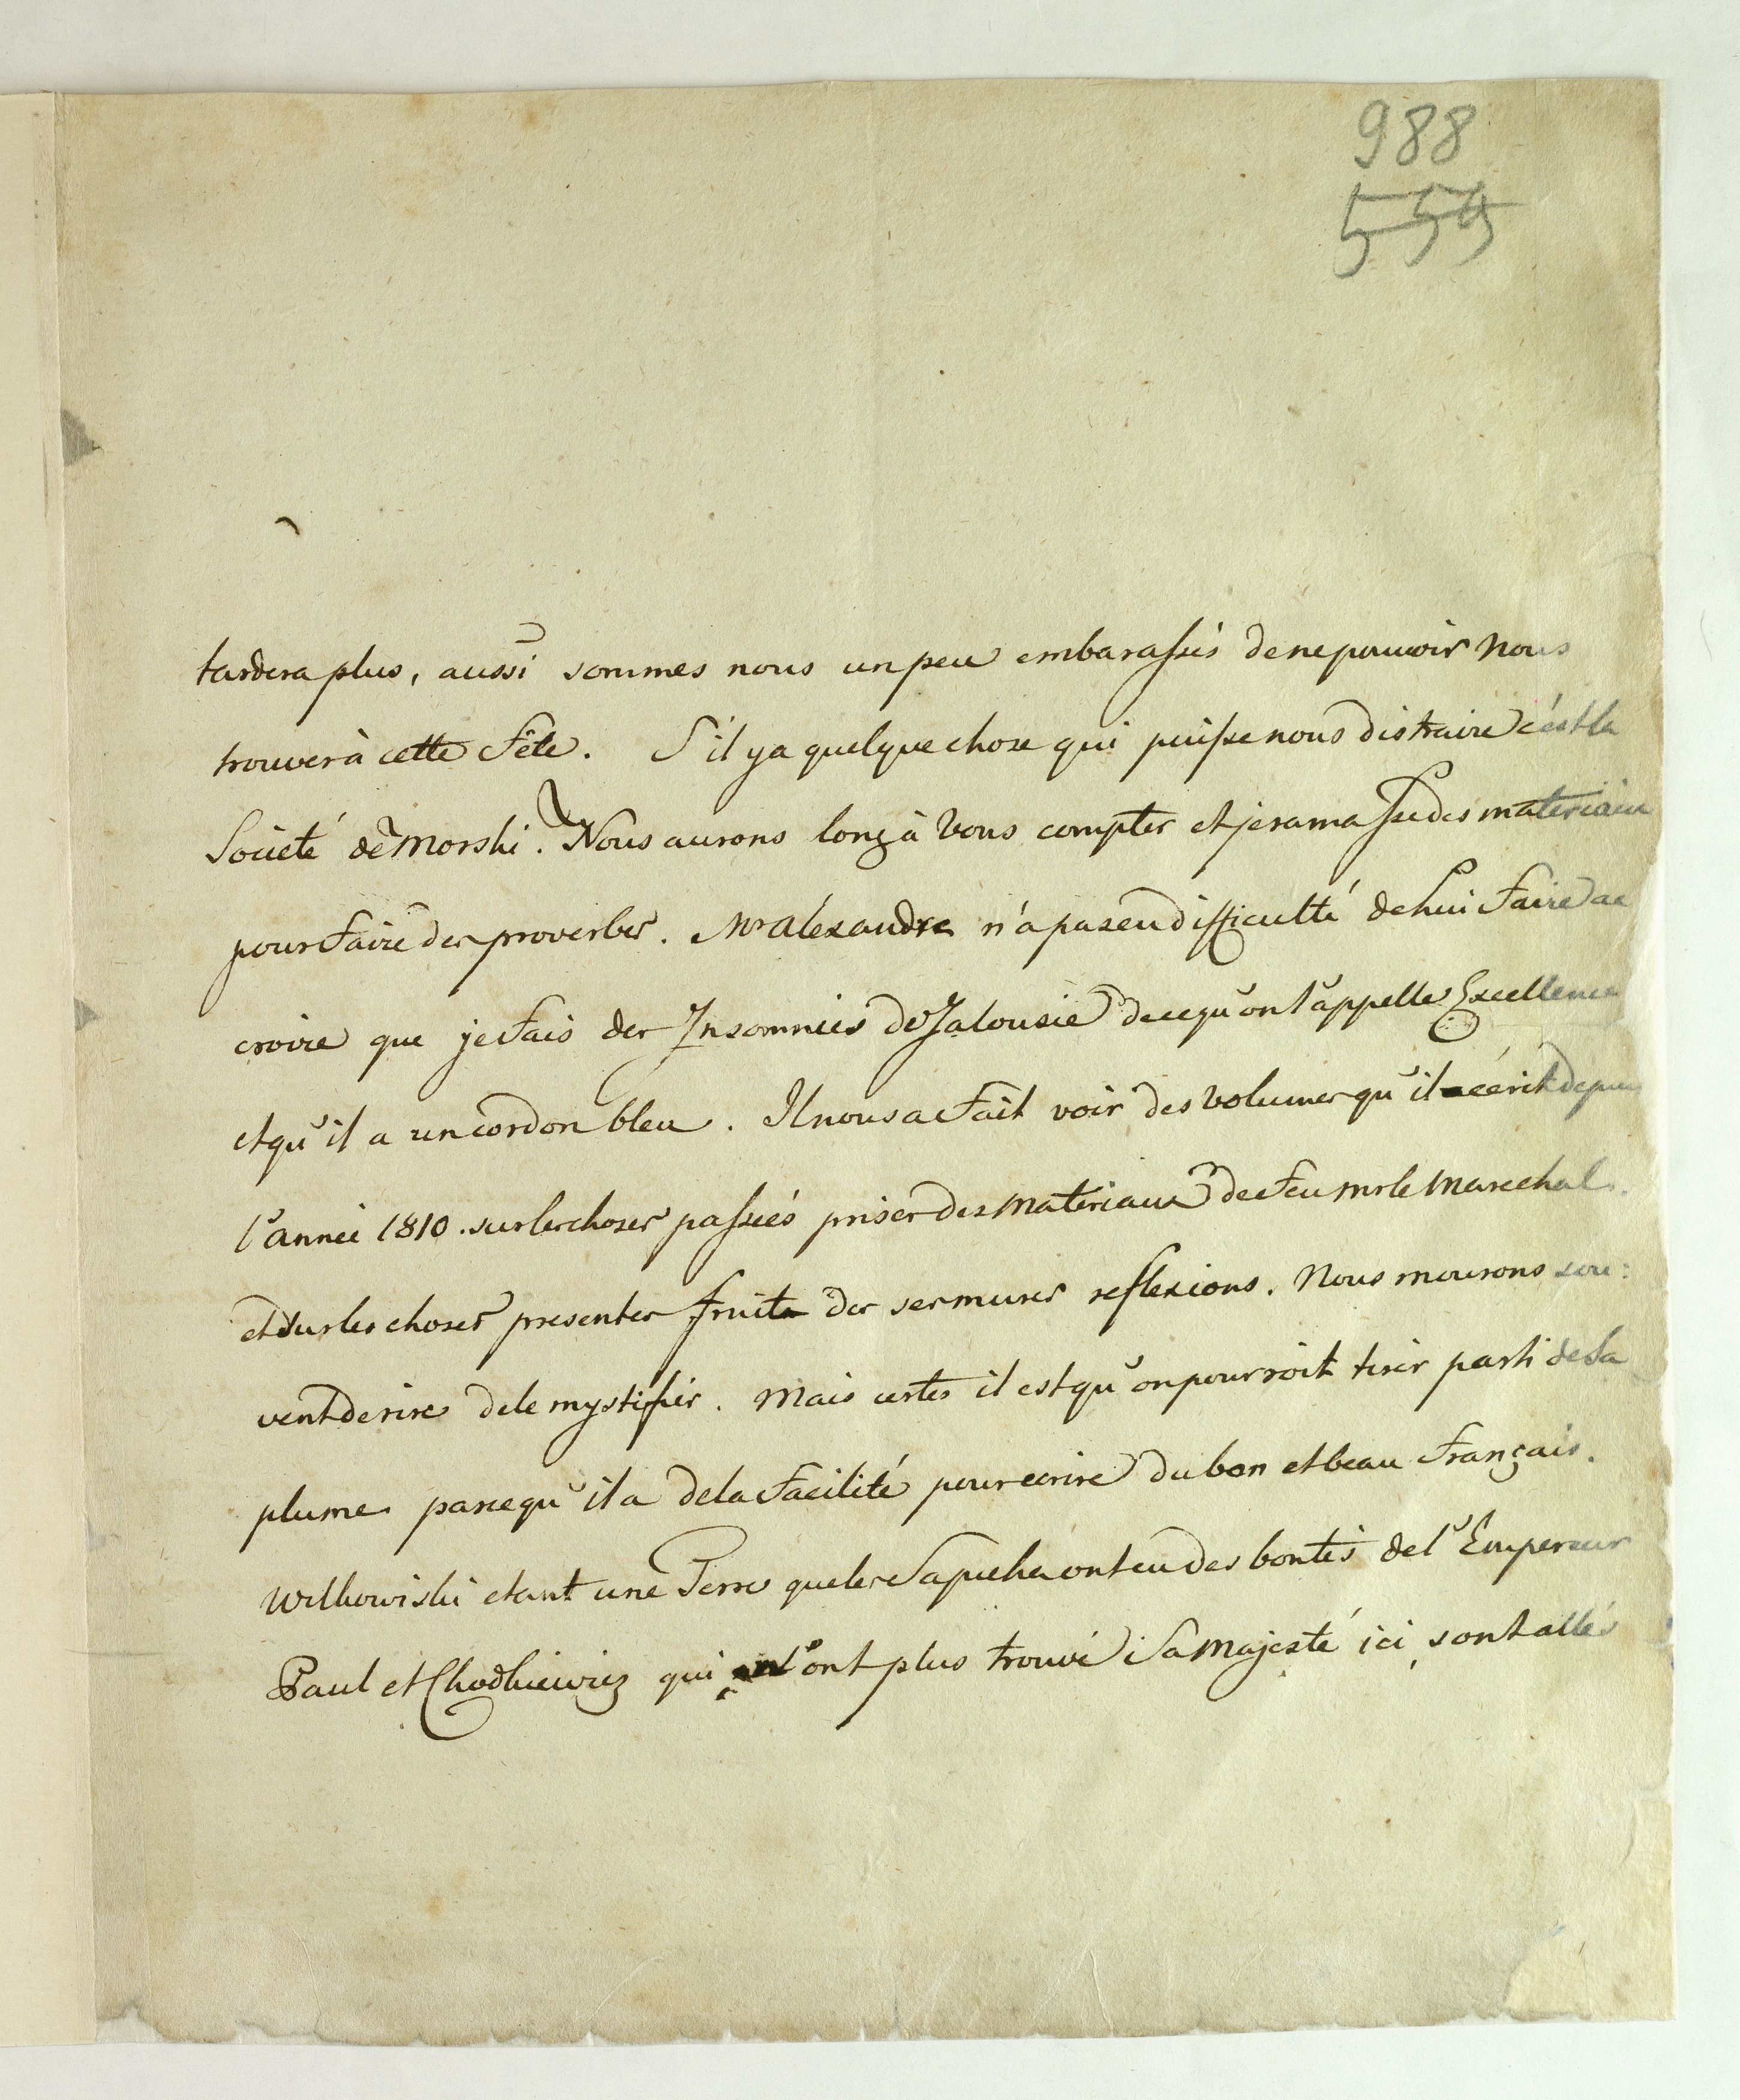 988
559
tardera plus, aussi sommes nous un peu embarassés de ne pouvoir nous
trouver à cette Fête. S'il y a quelque chose qui puisse nous distraire c'est la
Société de Morski. Nous aurons long à vous compter et je ramasse des materiaux
pour faire des proverbes. Mr Alexandre n'a pas eu difficulté de lui faire ac
croire que je fais des Insomnies de Jalousie de ce qu'on l'appelle Excellence
et qu'il a un cordon bleu. Il nous a fait voir des volumes qu'il écrit depuis
l'année 1810. sur les choses passées prises des materiaux de feu mr le Marechal.
et sur les choses presentes fruit des ses mures reflexions. Nous mourons sou:
vent de rire de le mystifier. Mais certes il est qu'on pourroit tirer parti de sa
plume parce qu'il a de la facilité pour ecrire du bon et beau Français.
Wilkowiski etant une Terre que les Sapieha ont eu des bontés de l'Empereur
Paul et Chodkiewicz qui n'ont plus trouvé Sa Majesté ici, sont allés